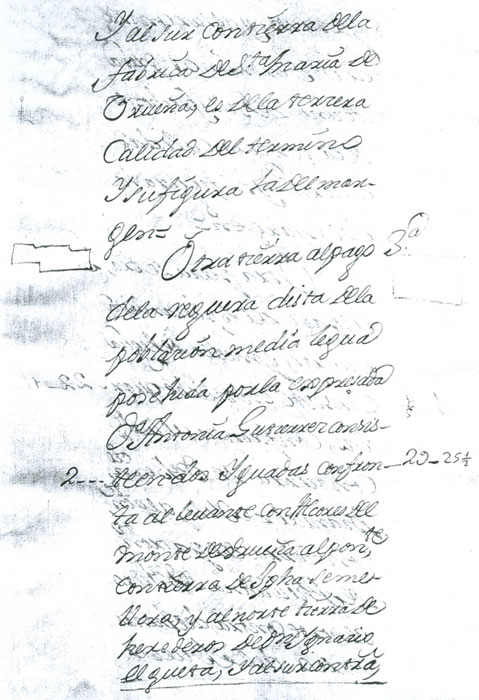 Y al sur con tierra de la
fabrica de Sta Maria de
Urueña, es de la tercera
Calidad del termino
Y su figura la del mar-
gen=
Otra tierra al pago 3a
de la reguera dista de la
poblacion media legua
posehida por la expresada
Da Antonia Gutierrez consis-
2--- te en dos Yguadas confron- 29-25½
ta al levante con del
monte de Urueña al ponte
con tierra de Seme-
y al norte tierra de
herederos de Dn Ygnacio
Elgueta, Y al sur con tra